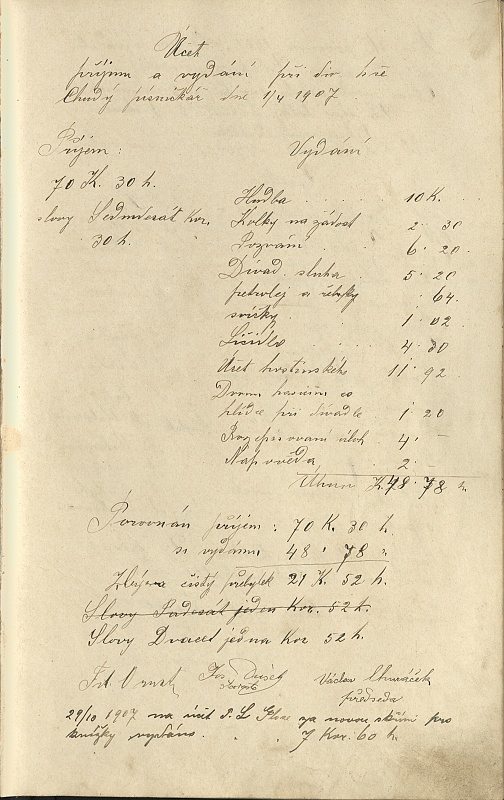 Účet
příjmu a vydání při div. hře
Chudý písničkář dne 1/4 1907
Příjem:
70 K. 30 h.
slovy Sedmdesát Kor.
30 h.
Vydání
Hudba 10 K.
Kolky na žádost 2 30
Pozvání 6 20
Divad. sluha 5 20
petrolej a řebíky 64
svíčky 1 02
Líčidlo 4 30
Účet hostinského 11 92
Dvoum hasičům co
hlídce při divadle 1 20
Rozepisování úloh 4 -
Nápověda 2 -
Úhrn K 48 78 h
Porovnán příjem: 70 K. 30 h.
s vydáním 48 78 h
čistý přebytek 21 K. 52 h.
Slovy Padesát jeden Kor. 52 h.
Slovy Dvacet jedna Kor 52 h.
Jos. Dušek
Václav Chvaáček
předseda
29/10 1907 na účet za novou skříni pro
knížky vydáno. 7 Kor. 60 h.